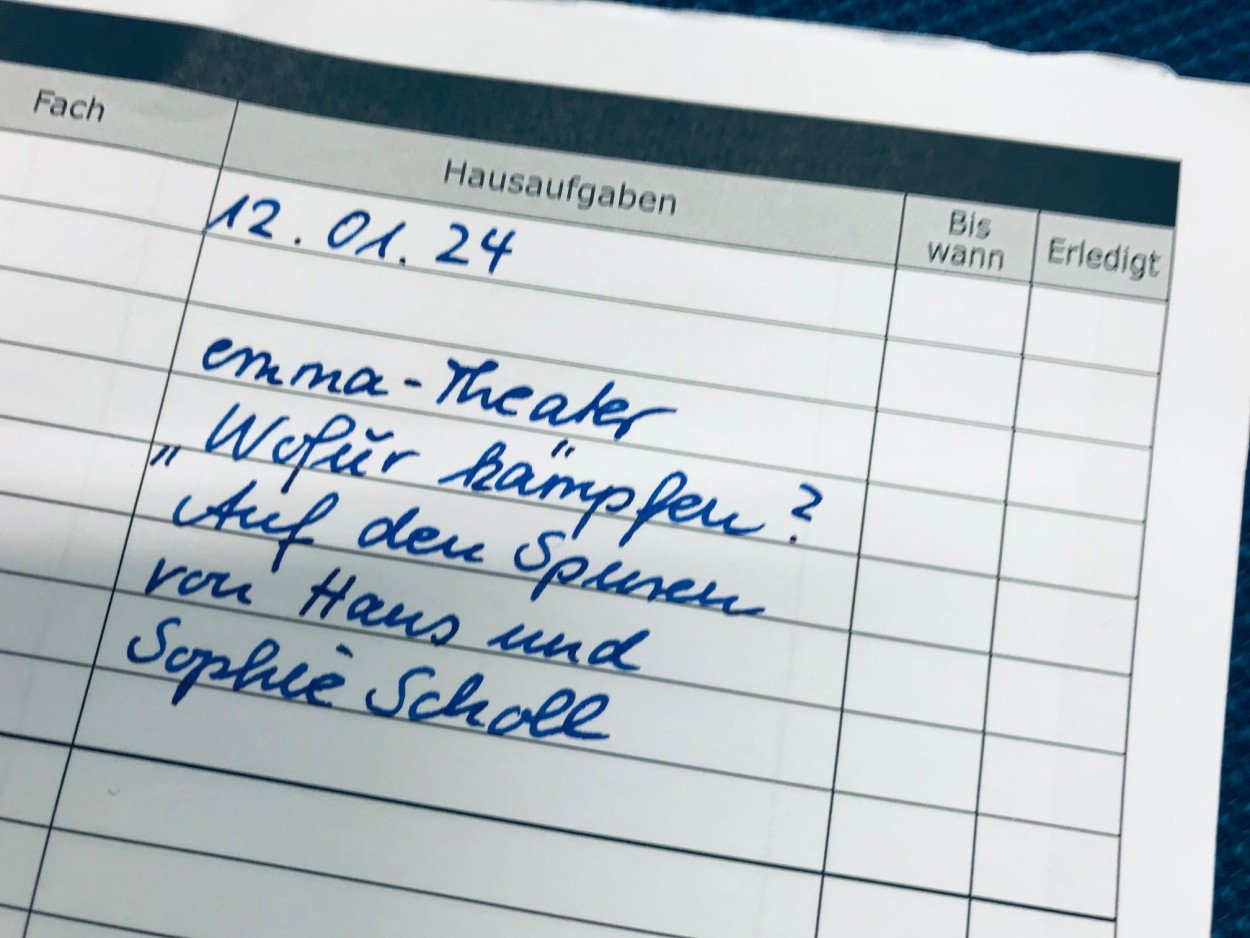 Fach Hausaufgaben Bis wann Erledigt
12.01.24
emma-Theater
„Wofür kämpfen?
Auf den Spuren
von Hans und
Sophie Scholl